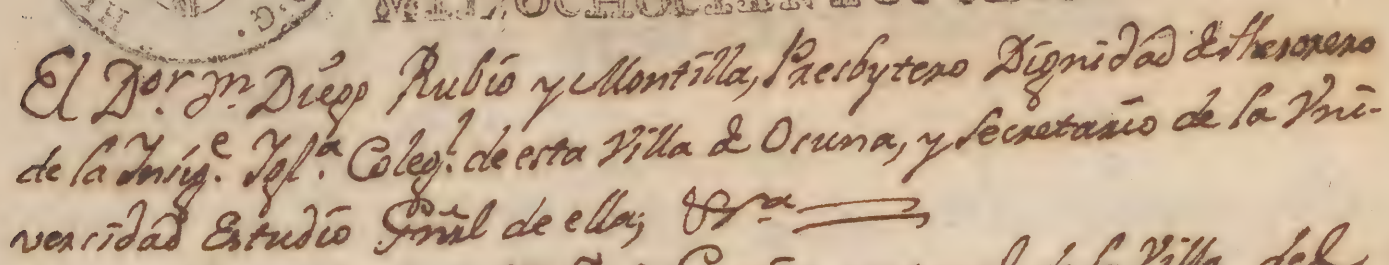 MIL, OCHOCIENTOS
El Dor. Dn. Diego Rubio y Montilla, Presbytero Dignidad de Thesorero
de la Insig.e Igl.a Coleg.l de esta Villa de Osuna, y Secretario de la Vni-
versidad Estudio Gñral de ella;
de la Villa del